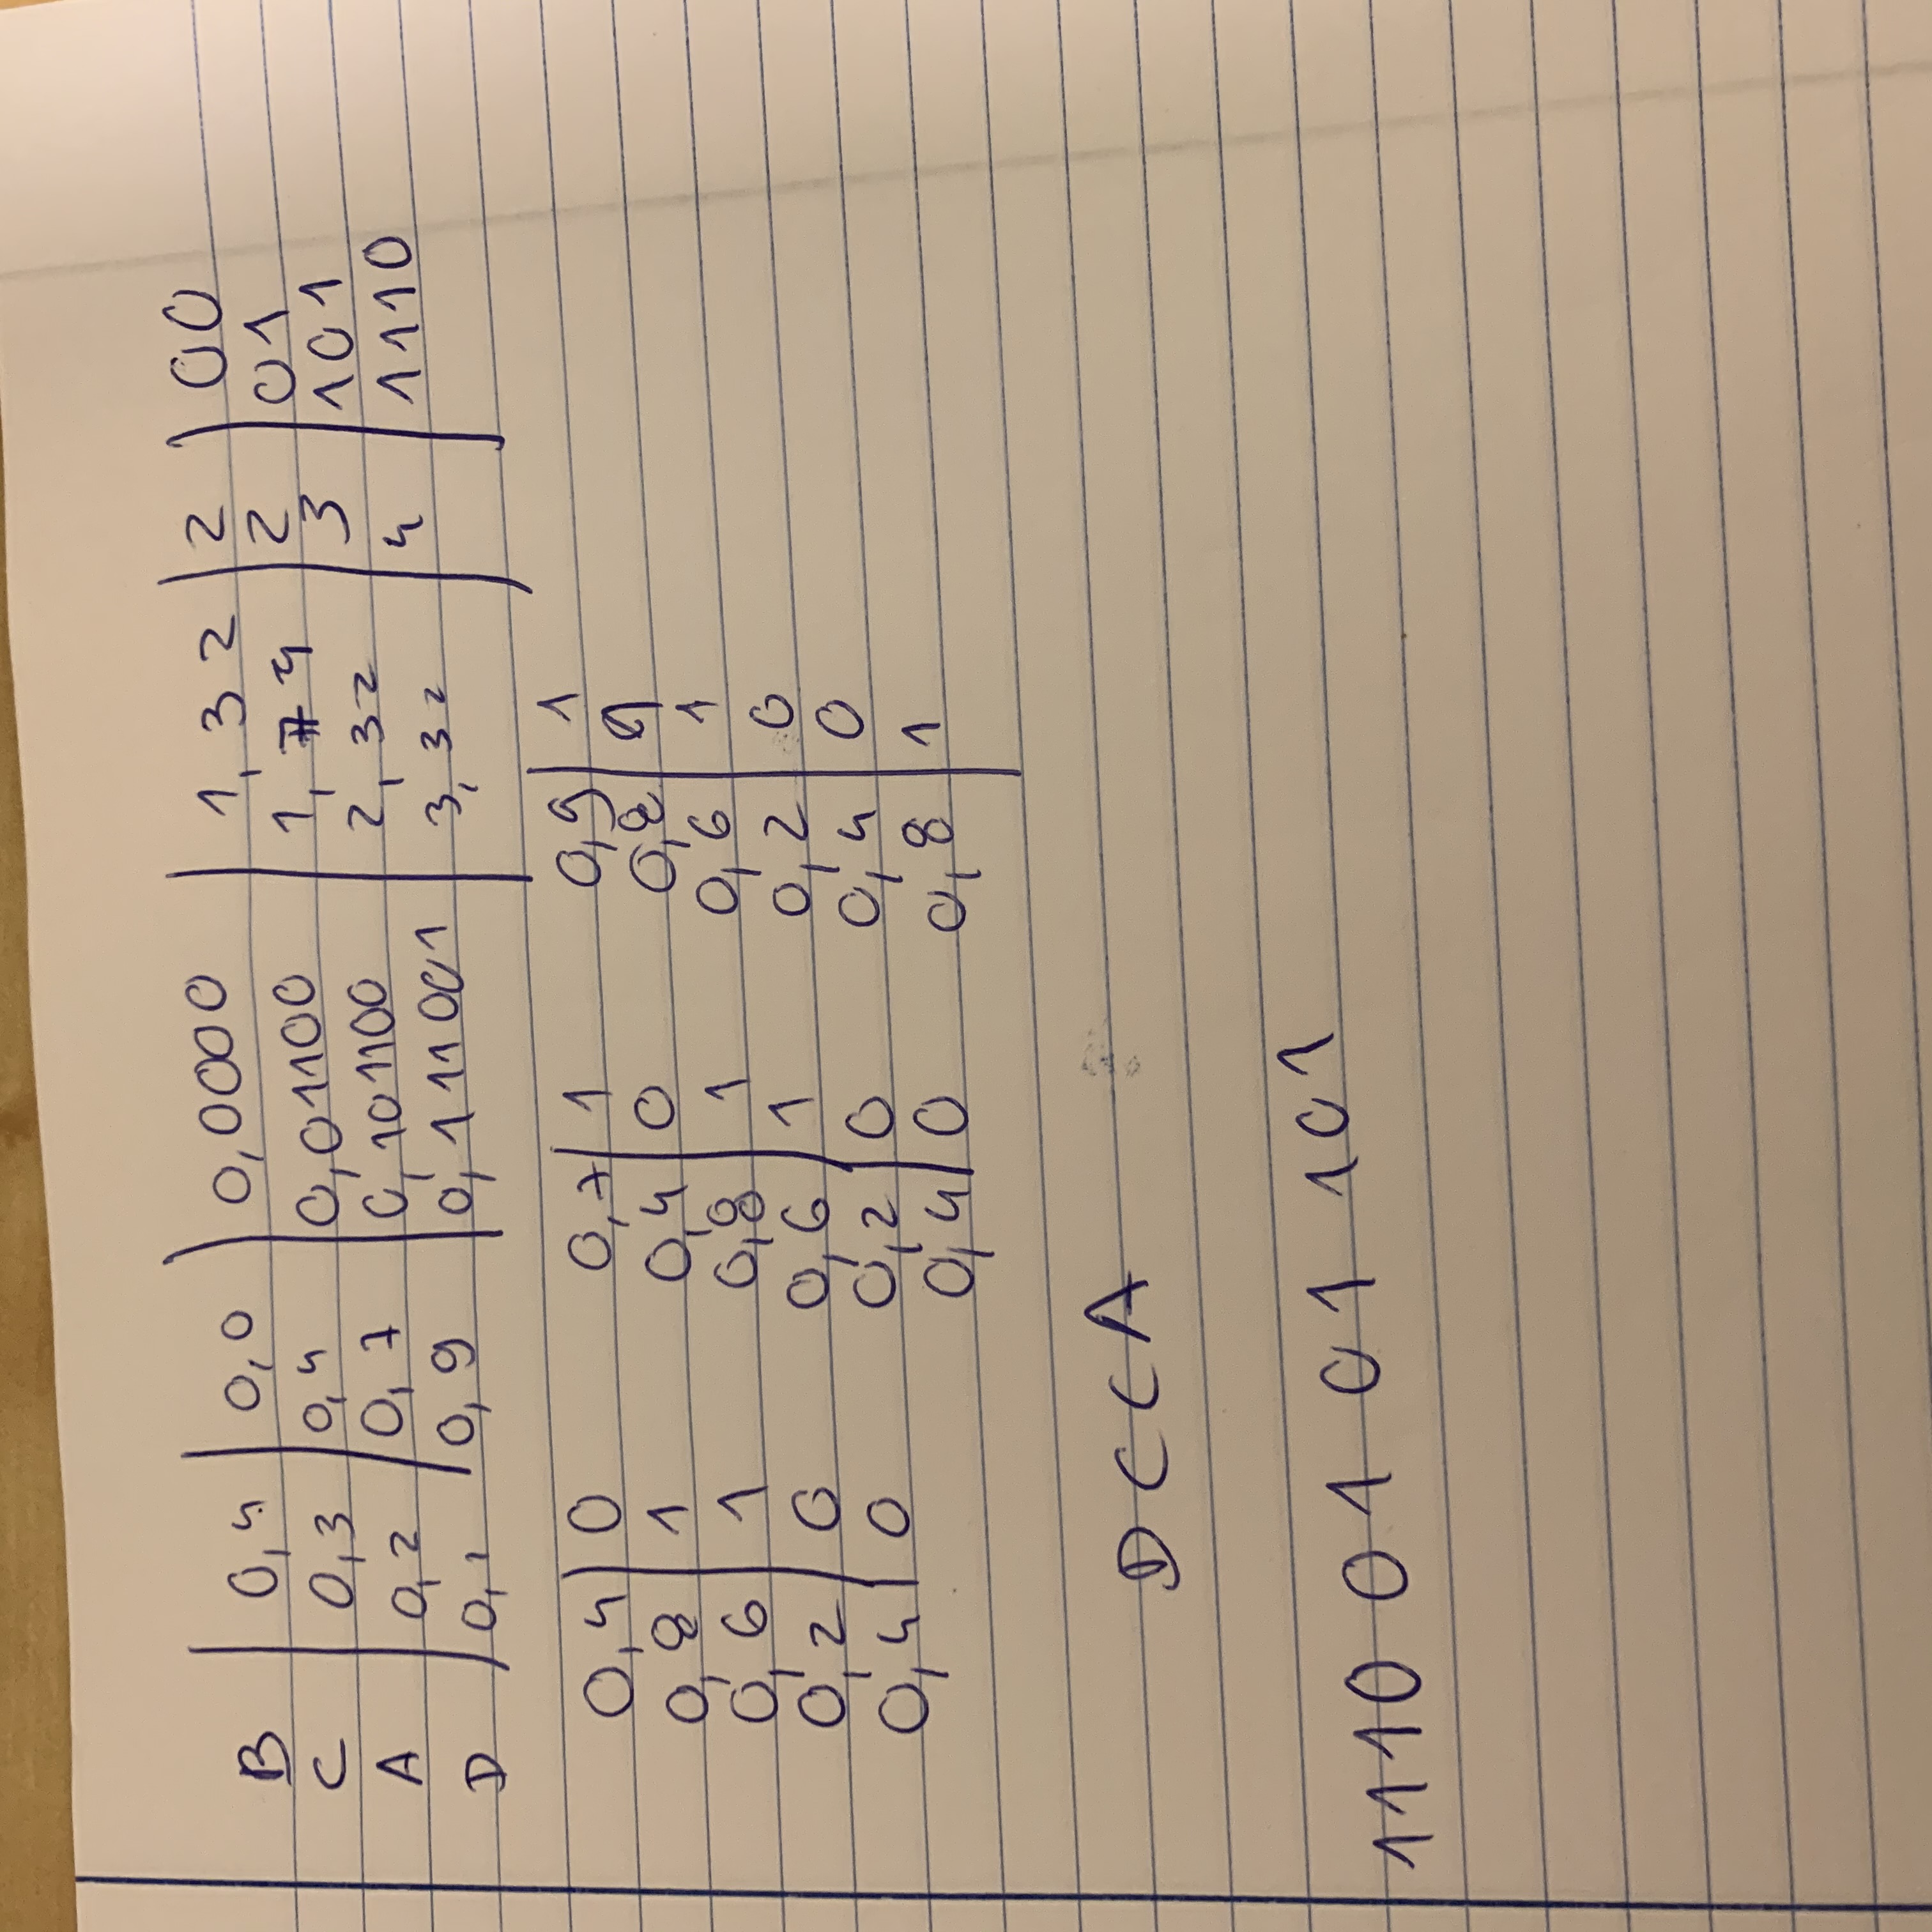 B | 0,4 | 0,0 | 0,0000 | 1,32 | 2 | 00
C | 0,3 | 0,4 | 0,01100 | 1,74 | 2 | 01
A | 0,2 | 0,7 | 0,101100 | 2,32 | 3 | 101
D | 0,1 | 0,9 | 0,111001 | 3,32 | 4 | 1110
0,4 | 0 0,7 | 1 0,9 | 1
0,8 | 1 0,4 | 0 0,8 | 1
0,6 | 1 0,8 | 1 0,6 | 1
0,2 | 0 0,6 | 1 0,2 | 0
0,4 | 0 0,2 | 0 0,4 | 0
0,4 | 0 0,8 | 1
DCCA
1110 01 01 101